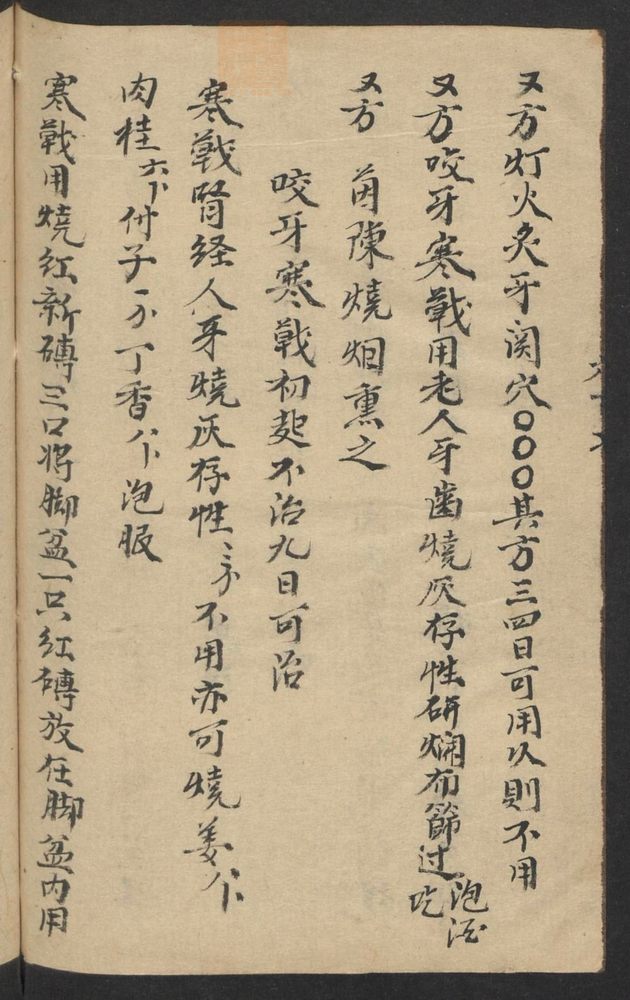 又方灯火炙牙関穴〇〇〇其方三四日可用久則不用
又方咬牙寒戰用老人牙齒燒灰存性研爛布篩过泡酒吃
又方 茵陳燒烟熏之
咬牙寒戰初起不治九日可治
寒戰腎経人牙燒灰存性不用亦可燒姜
肉桂付子丁香泡服
寒戰用燒紅新磚三口将脚盆一只紅磚放在脚盆内用